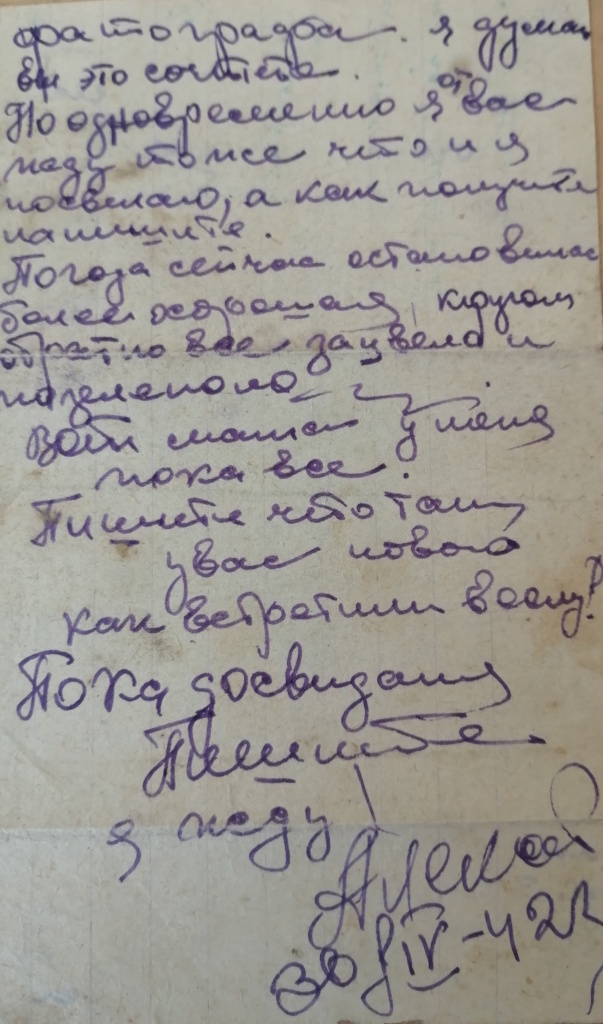 фатографа. я думаю
вы это сочтете.
Но одновременно я от вас
жду тоже что и я
посылаю, а как получите
напишите.
Погода сейчас остановилас
более хорошая, кругом
обратно все зацвело и
позеленело.
Вот мама у меня
пока все.
Пишите что там
у вас нового
как встретили весну?
Пока досвидания
Пишите
я жду
Алексей
30/IV-42г